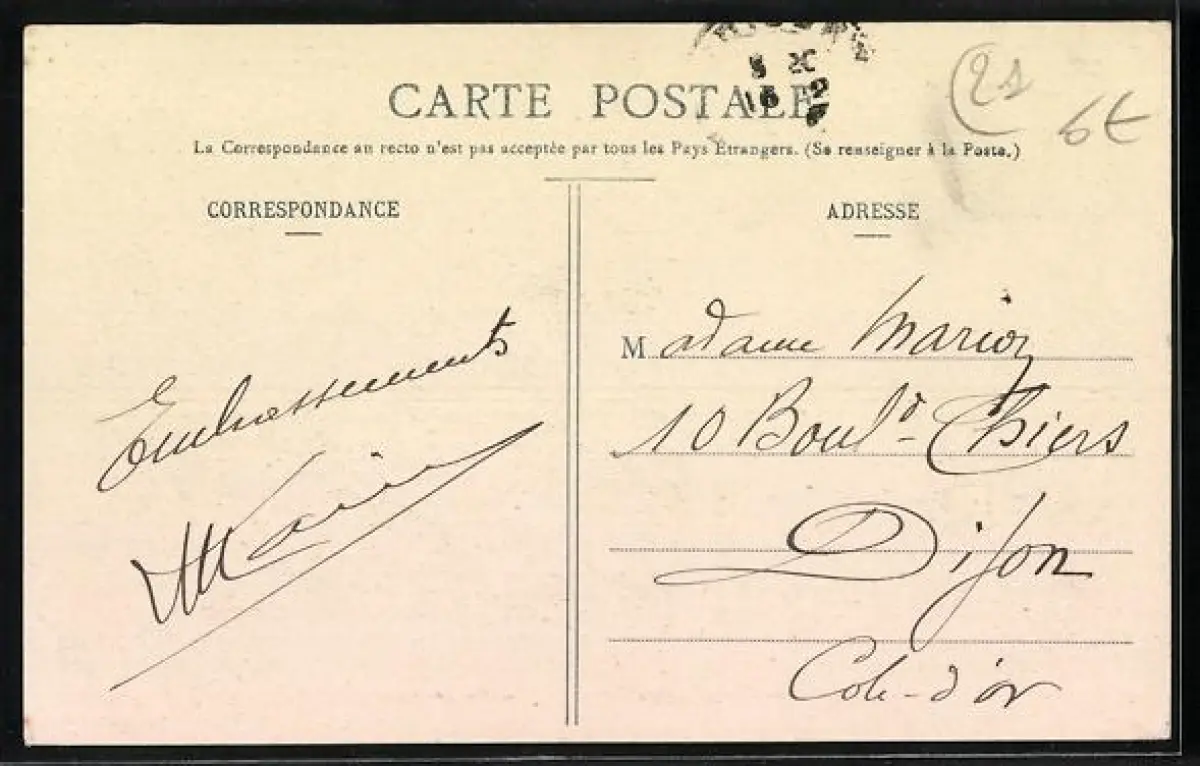 CARTE POSTALE
La Correspondance au recto n'est pas acceptée par tous les Pays Étrangers. (Se renseigner à la Poste.)
CORRESPONDANCE
ADRESSE
Embrassements
Madame Marion
10 Boul.d Thiers
Dijon
Cote-d'or
6€